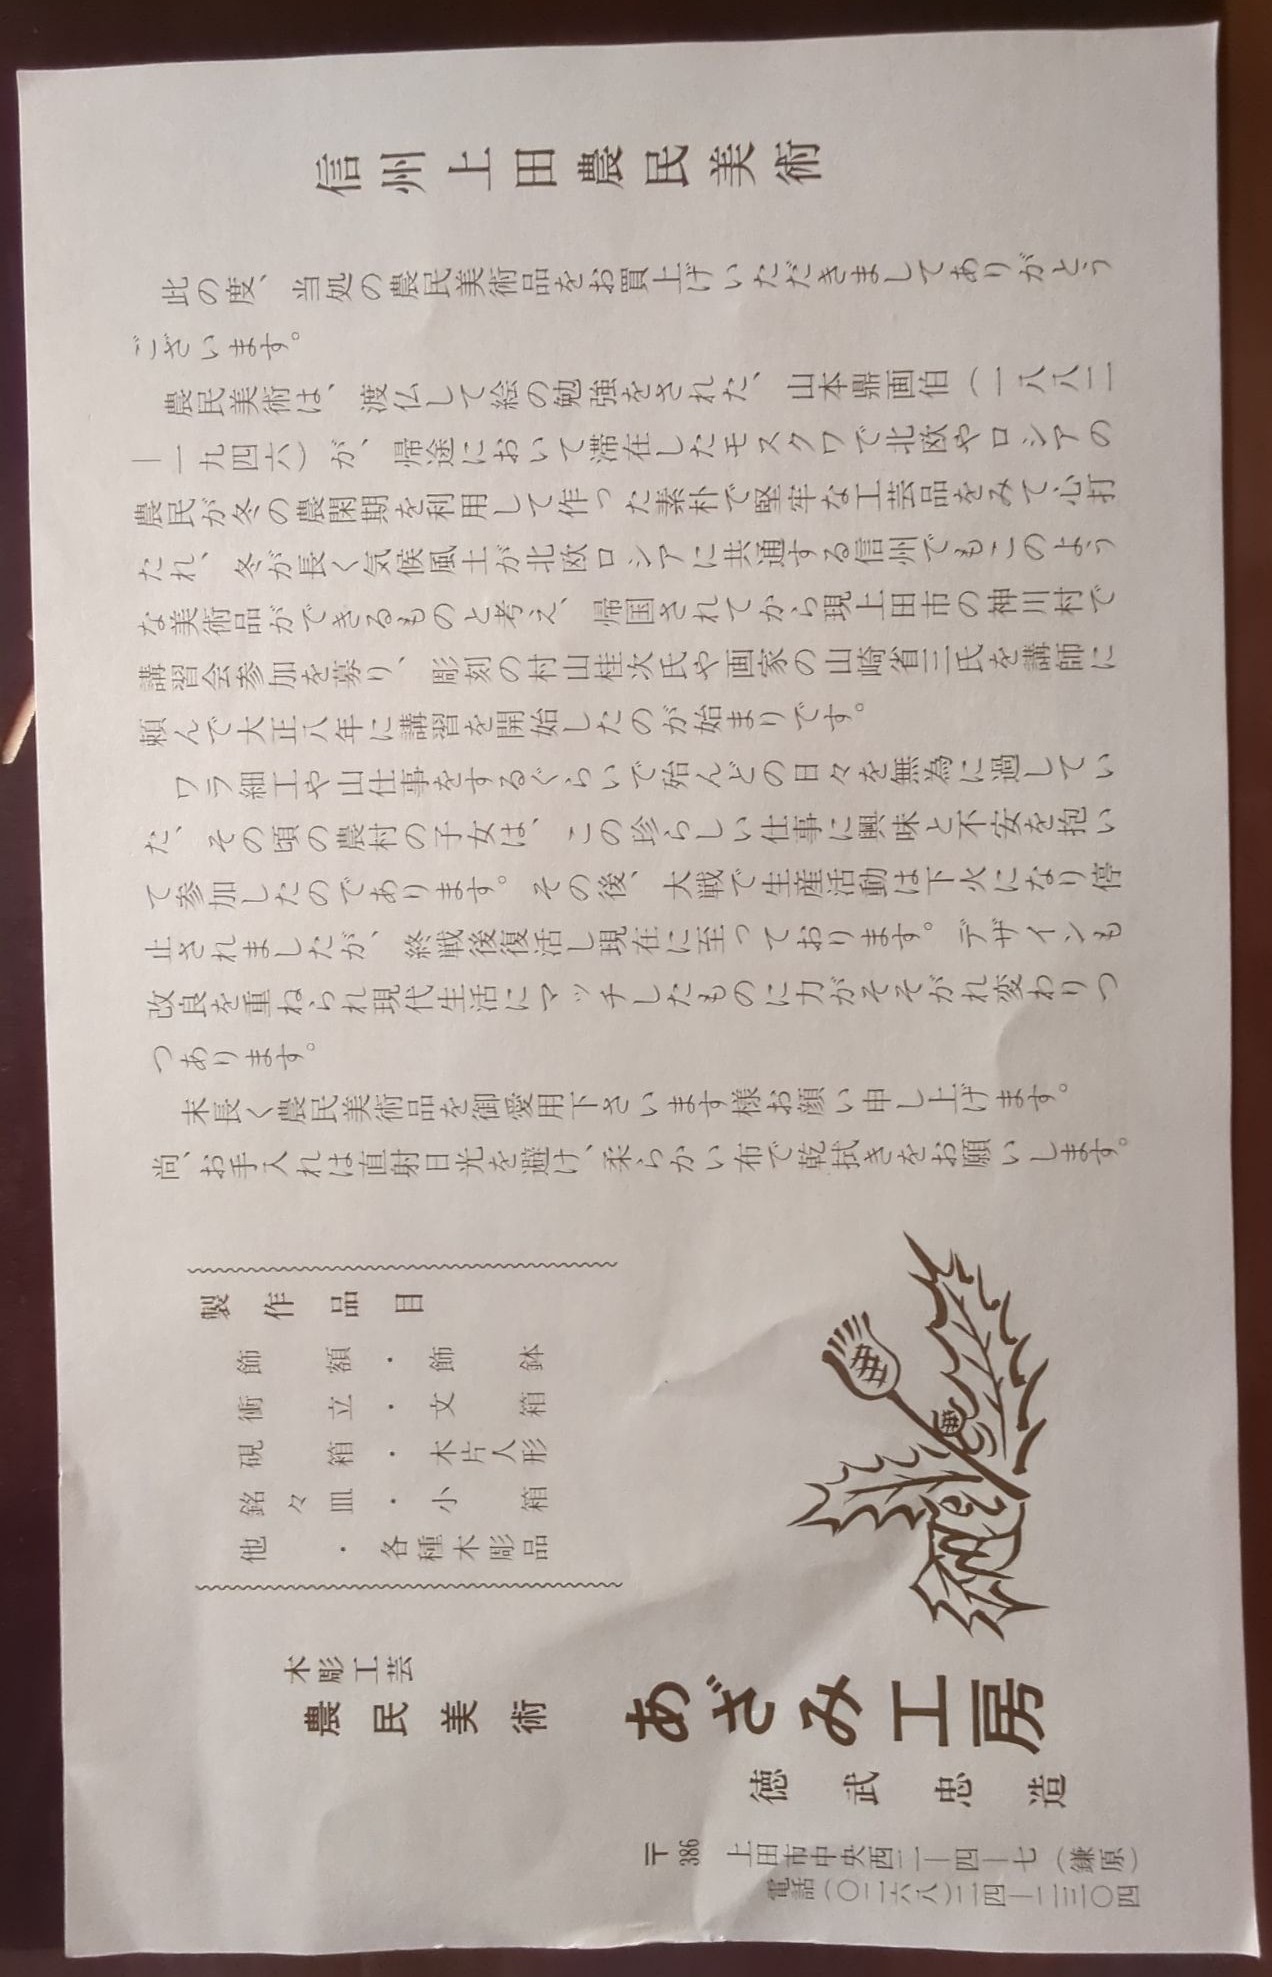 信州上田農民美術
此の度、当処の農民美術品をお買上げいただきましてありがとう
ございます。
農民美術は、渡仏して絵の勉強をされた、山本鼎画伯(一八八二
―一九四六)が、帰途において滞在したモスクワで北欧やロシアの
農民が冬の農閑期を利用して作った素朴で堅牢な工芸品をみて心打
たれ、冬が長く気候風土が北欧ロシアに共通する信州でもこのよう
な美術品ができるものと考え、帰国されてから現上田市の神川村で
講習会参加を募り、彫刻の村山桂次氏や画家の山崎省三氏を講師に
頼んで大正八年に講習を開始したのが始まりです。
ワラ細工や山仕事をするぐらいで殆んどの日々を無為に過してい
た、その頃の農村の子女は、この珍らしい仕事に興味と不安を抱い
て参加したのであります。その後、大戦で生産活動は下火になり停
止されましたが、終戦後復活し現在に至っております。デザインも
改良を重ねられ現代生活にマッチしたものに力がそそがれ変わりつ
つあります。
末長く農民美術品を御愛用下さいます様お願い申し上げます。
尚、お手入れは直射日光を避け、柔らかい布で乾拭きをお願いします。
製作品目
飾額・飾鉢
衝立・文箱
硯箱・木片人形
銘々皿・小箱
他・各種木彫品
木彫工芸
農民美術
あざみ工房
徳武忠造
〒386 上田市中央西二―四―七(鎌原)
電話(〇二六八)二四―二三〇四